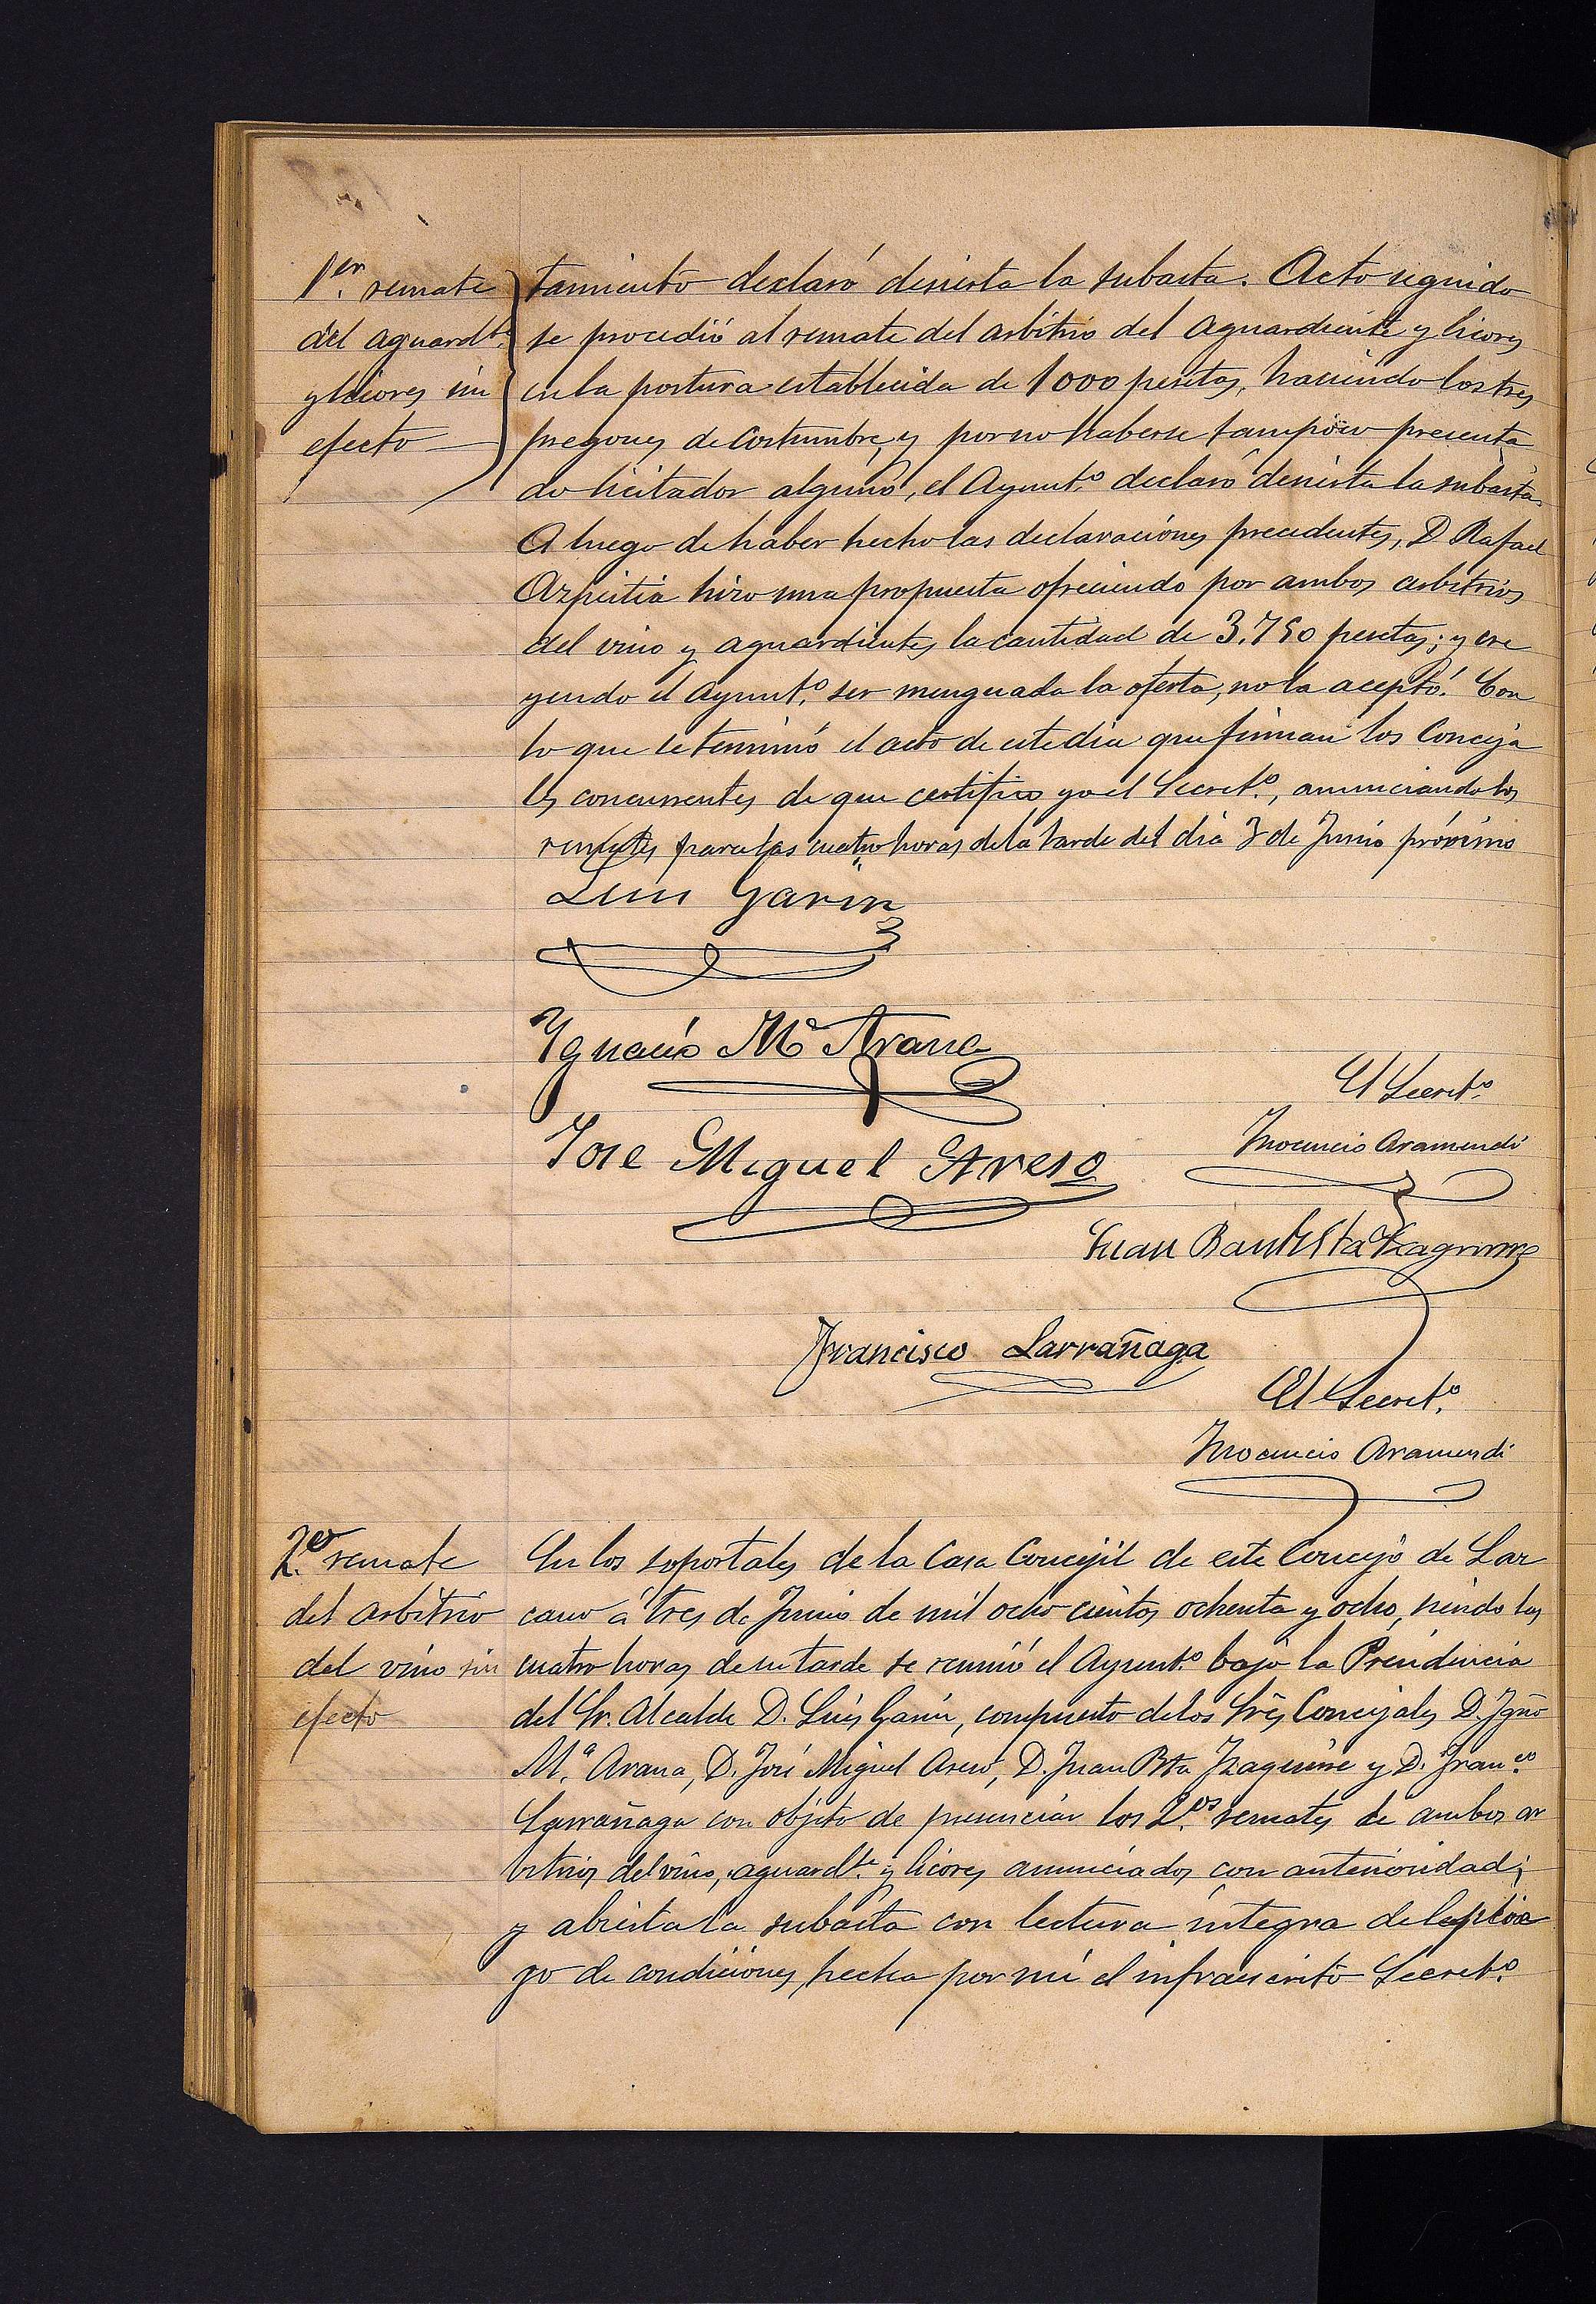 1.er remate
del aguardte.
y licores sin
efecto
tamiento declaró desierta la subasta. Acto seguido
se procedió al remate del arbitrio del aguardiente y licores
en la postura establecida de 1000 pesetas, haciendo los tres
pregones de costumbre, y por no haberse tampoco presenta
do licitador alguno, el Ayunt.o declaró desierta la subasta.
A luego de haber hecho las declaraciones precedentes, D. Rafael
Azpeitia hizo una propuesta ofreciendo por ambos arbitrios
del vino y aguardientes la cantidad de 3.750 pesetas; y cre
yendo el Ayunt.o ser menguada la oferta, no la aceptó. Con
lo que se terminó el acto de este dia que firman los Conceja
les concurrentes de que certifico yo el Secret.o, anunciando los
remates para las cuatro horas de la tarde del dia 3 de Junio próximo
Luis Garin
Ygnacio M.a Arana
El Secret.o
Jose Miguel Areso
Inocencio Aramendi
Juan Bautista Yzaguirre
Francisco Larrañaga
El Secret.o
Inocencio Aramendi
2.o remate
del arbitrio
del vino sin
efecto
En los soportales de la Casa Concejil de este Concejo de Laz
cano á tres de Junio de mil ocho cientos ochenta y ocho, siendo las
cuatro horas de su tarde se reunió el Ayunt.o bajo la Presidencia
del Sr. Alcalde D. Luis Garin, compuesto de los Srēs Concejales D. Ygno
M.a Arana, D. José Miguel Areso, D. Juan Bta Yzaguirre y D. Fran.co
Larrañaga con objeto de presenciar los 2.os remates de ambos ar
bitrios del vino, aguardte. y licores anunciados con anterioridad;
y abierta la subasta con lectura íntegra del plie
go de condiciones, hecha por mí el infrascrito Secret.o